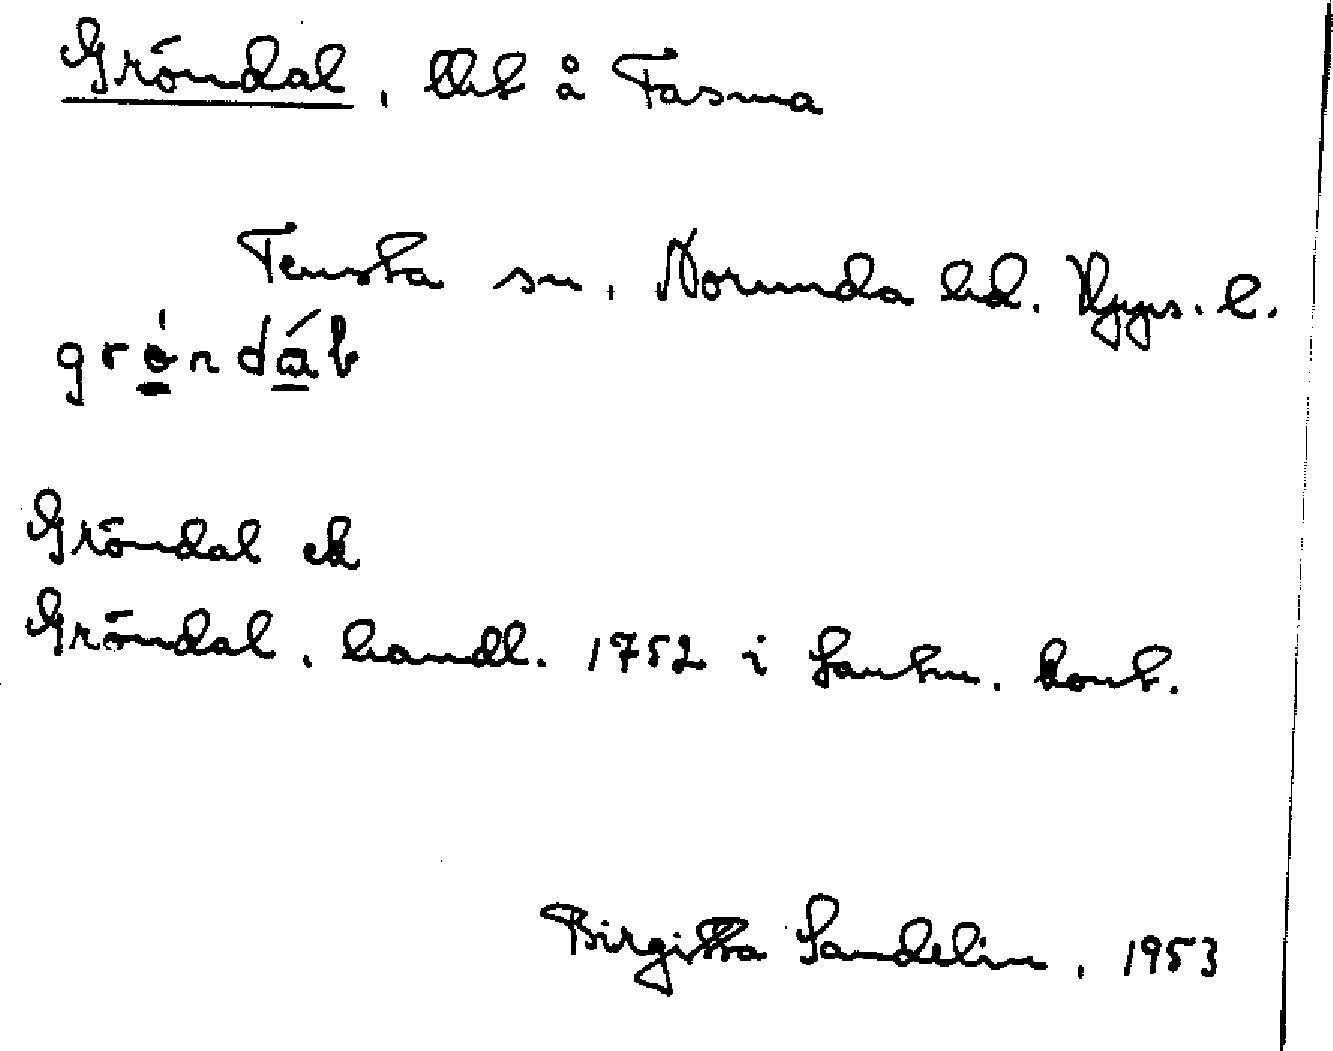 Gröndal, tlht å Fasma
Tensta sn, Norunda hd. Upps. l.
grö̀ndál
Gröndal ek
Gröndal, handl. 1752 i Lantm. kont.
Birgitta Sandelin, 1953